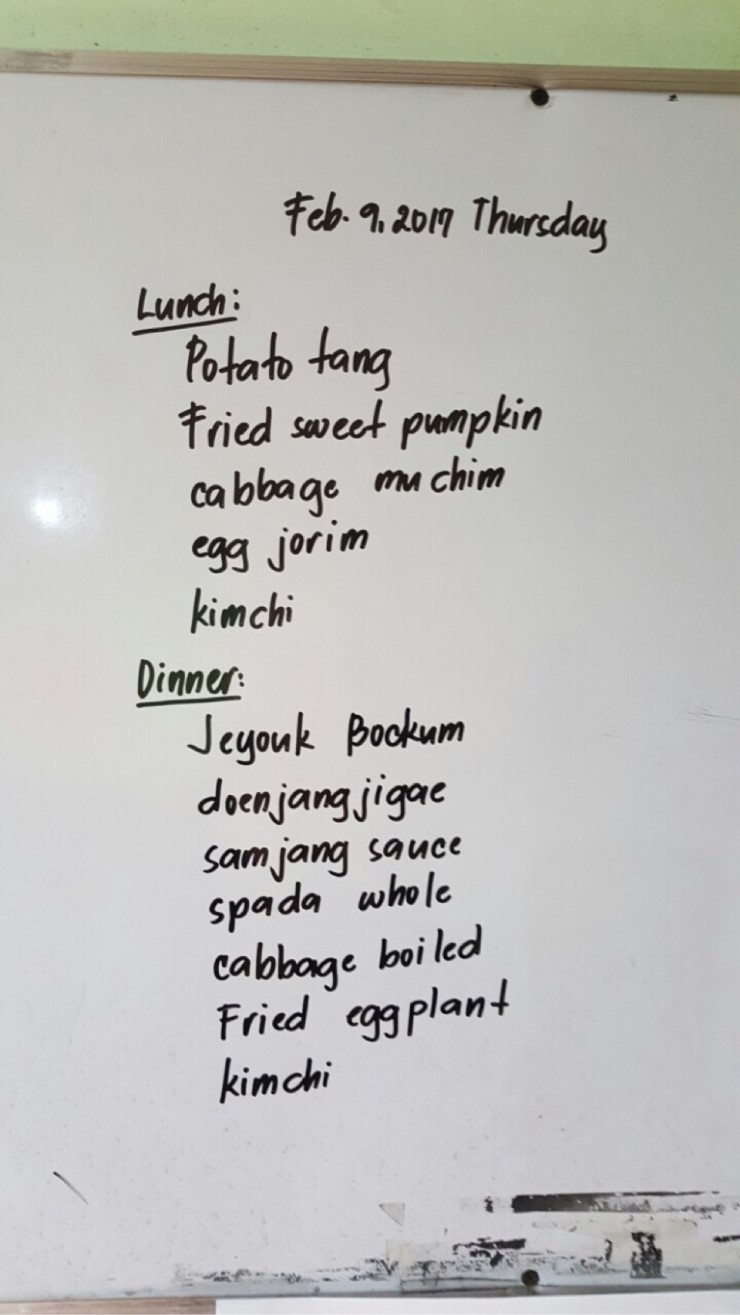 Feb. 9, 2017 Thursday
Lunch:
Potato tang
Fried sweet pumpkin
cabbage muchim
egg jorim
kimchi
Dinner:
Jeyouk Bockum
doenjangjigae
samjang sauce
spada whole
cabbage boiled
Fried eggplant
kimchi